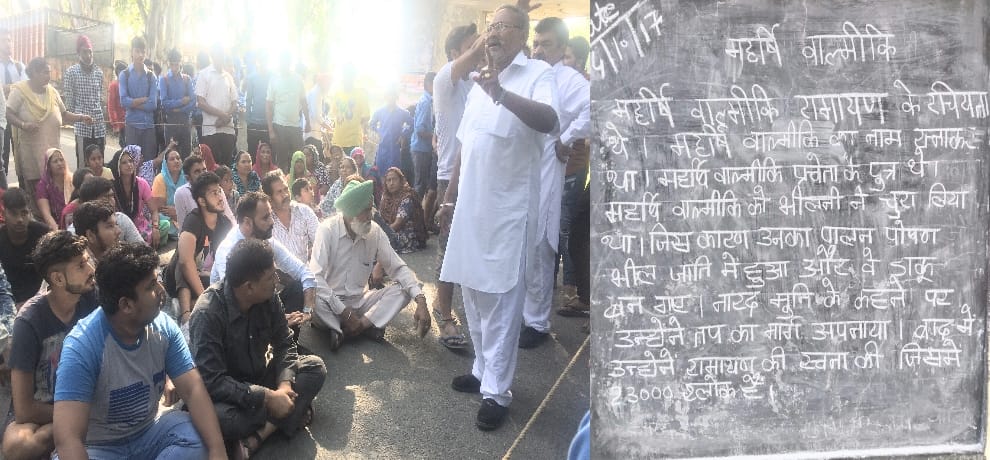 महर्षि वाल्मीकि
महर्षि वाल्मीकि रामायण के रचियता
थे। महर्षि वाल्मीकि का नाम रत्नाकर
था। महर्षि वाल्मीकि प्रचेता के पुत्र थे।
महर्षि वाल्मीकि को भीलनी ने चुरा लिया
था। जिस कारण उनका पालन पोषण
भील जाति में हुआ और वे डाकू
बन गए। नारद मुनि के कहने पर
उन्होंने तप का मार्ग अपनाया। बाद में
उन्होंने रामायण की रचना की जिसमें
23000 श्लोक हैं।